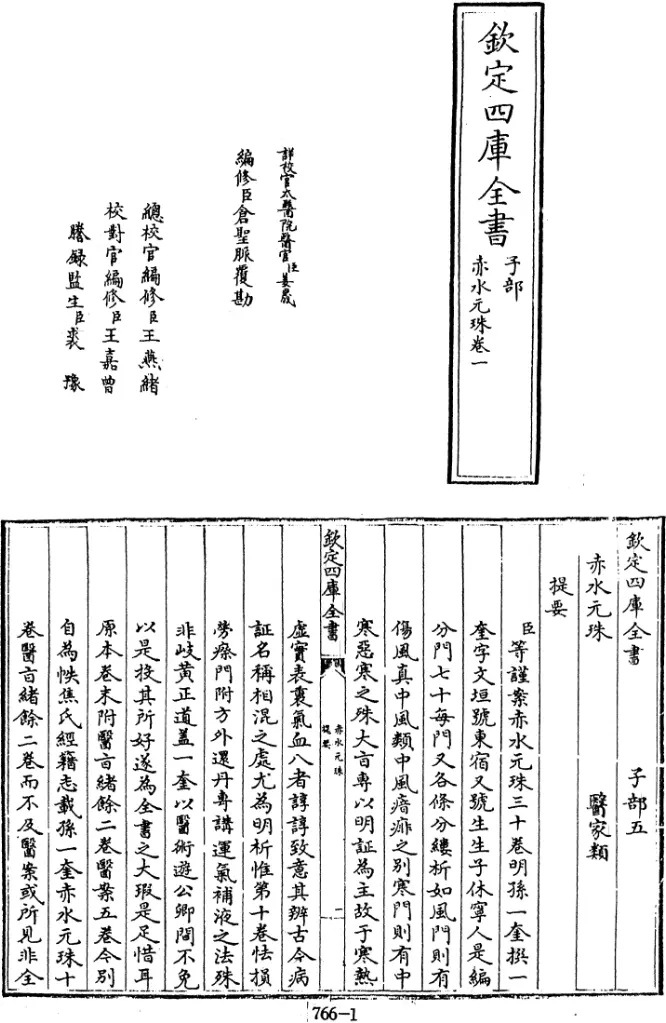 欽定四庫全書
子部
赤水元珠卷一
詳校官太醫院醫官臣姜晟
編修臣倉聖脈覆勘
總校官編修臣王燕緒
校對官編修臣王嘉曾
謄錄監生臣裘豫
欽定四庫全書
子部五
赤水元珠
醫家類
提要
臣等謹案赤水元珠三十卷明孫一奎撰一
奎字文垣號東宿又號生生子休寧人是編
分門七十每門又各條分縷析如風門則有
傷風真中風類中風瘖痱之別寒門則有中
寒惡寒之殊大旨專以明証為主故于寒熱
欽定四庫全書
赤水元珠
提要
二
虛實表裏氣血八者諄諄致意其辨古今病
証名稱相混之處尤為明析惟第十卷怯損
勞瘵門附方外還丹專講運氣補液之法殊
非岐黃正道蓋一奎以醫術遊公卿間不免
以是投其所好遂為全書之大瑕是足惜耳
原本卷末附醫旨緒餘二卷醫案五卷今別
自為帙焦氏經籍志載孫一奎赤水元珠十
卷醫旨緒餘二卷而不及醫案或所見非全
766-1